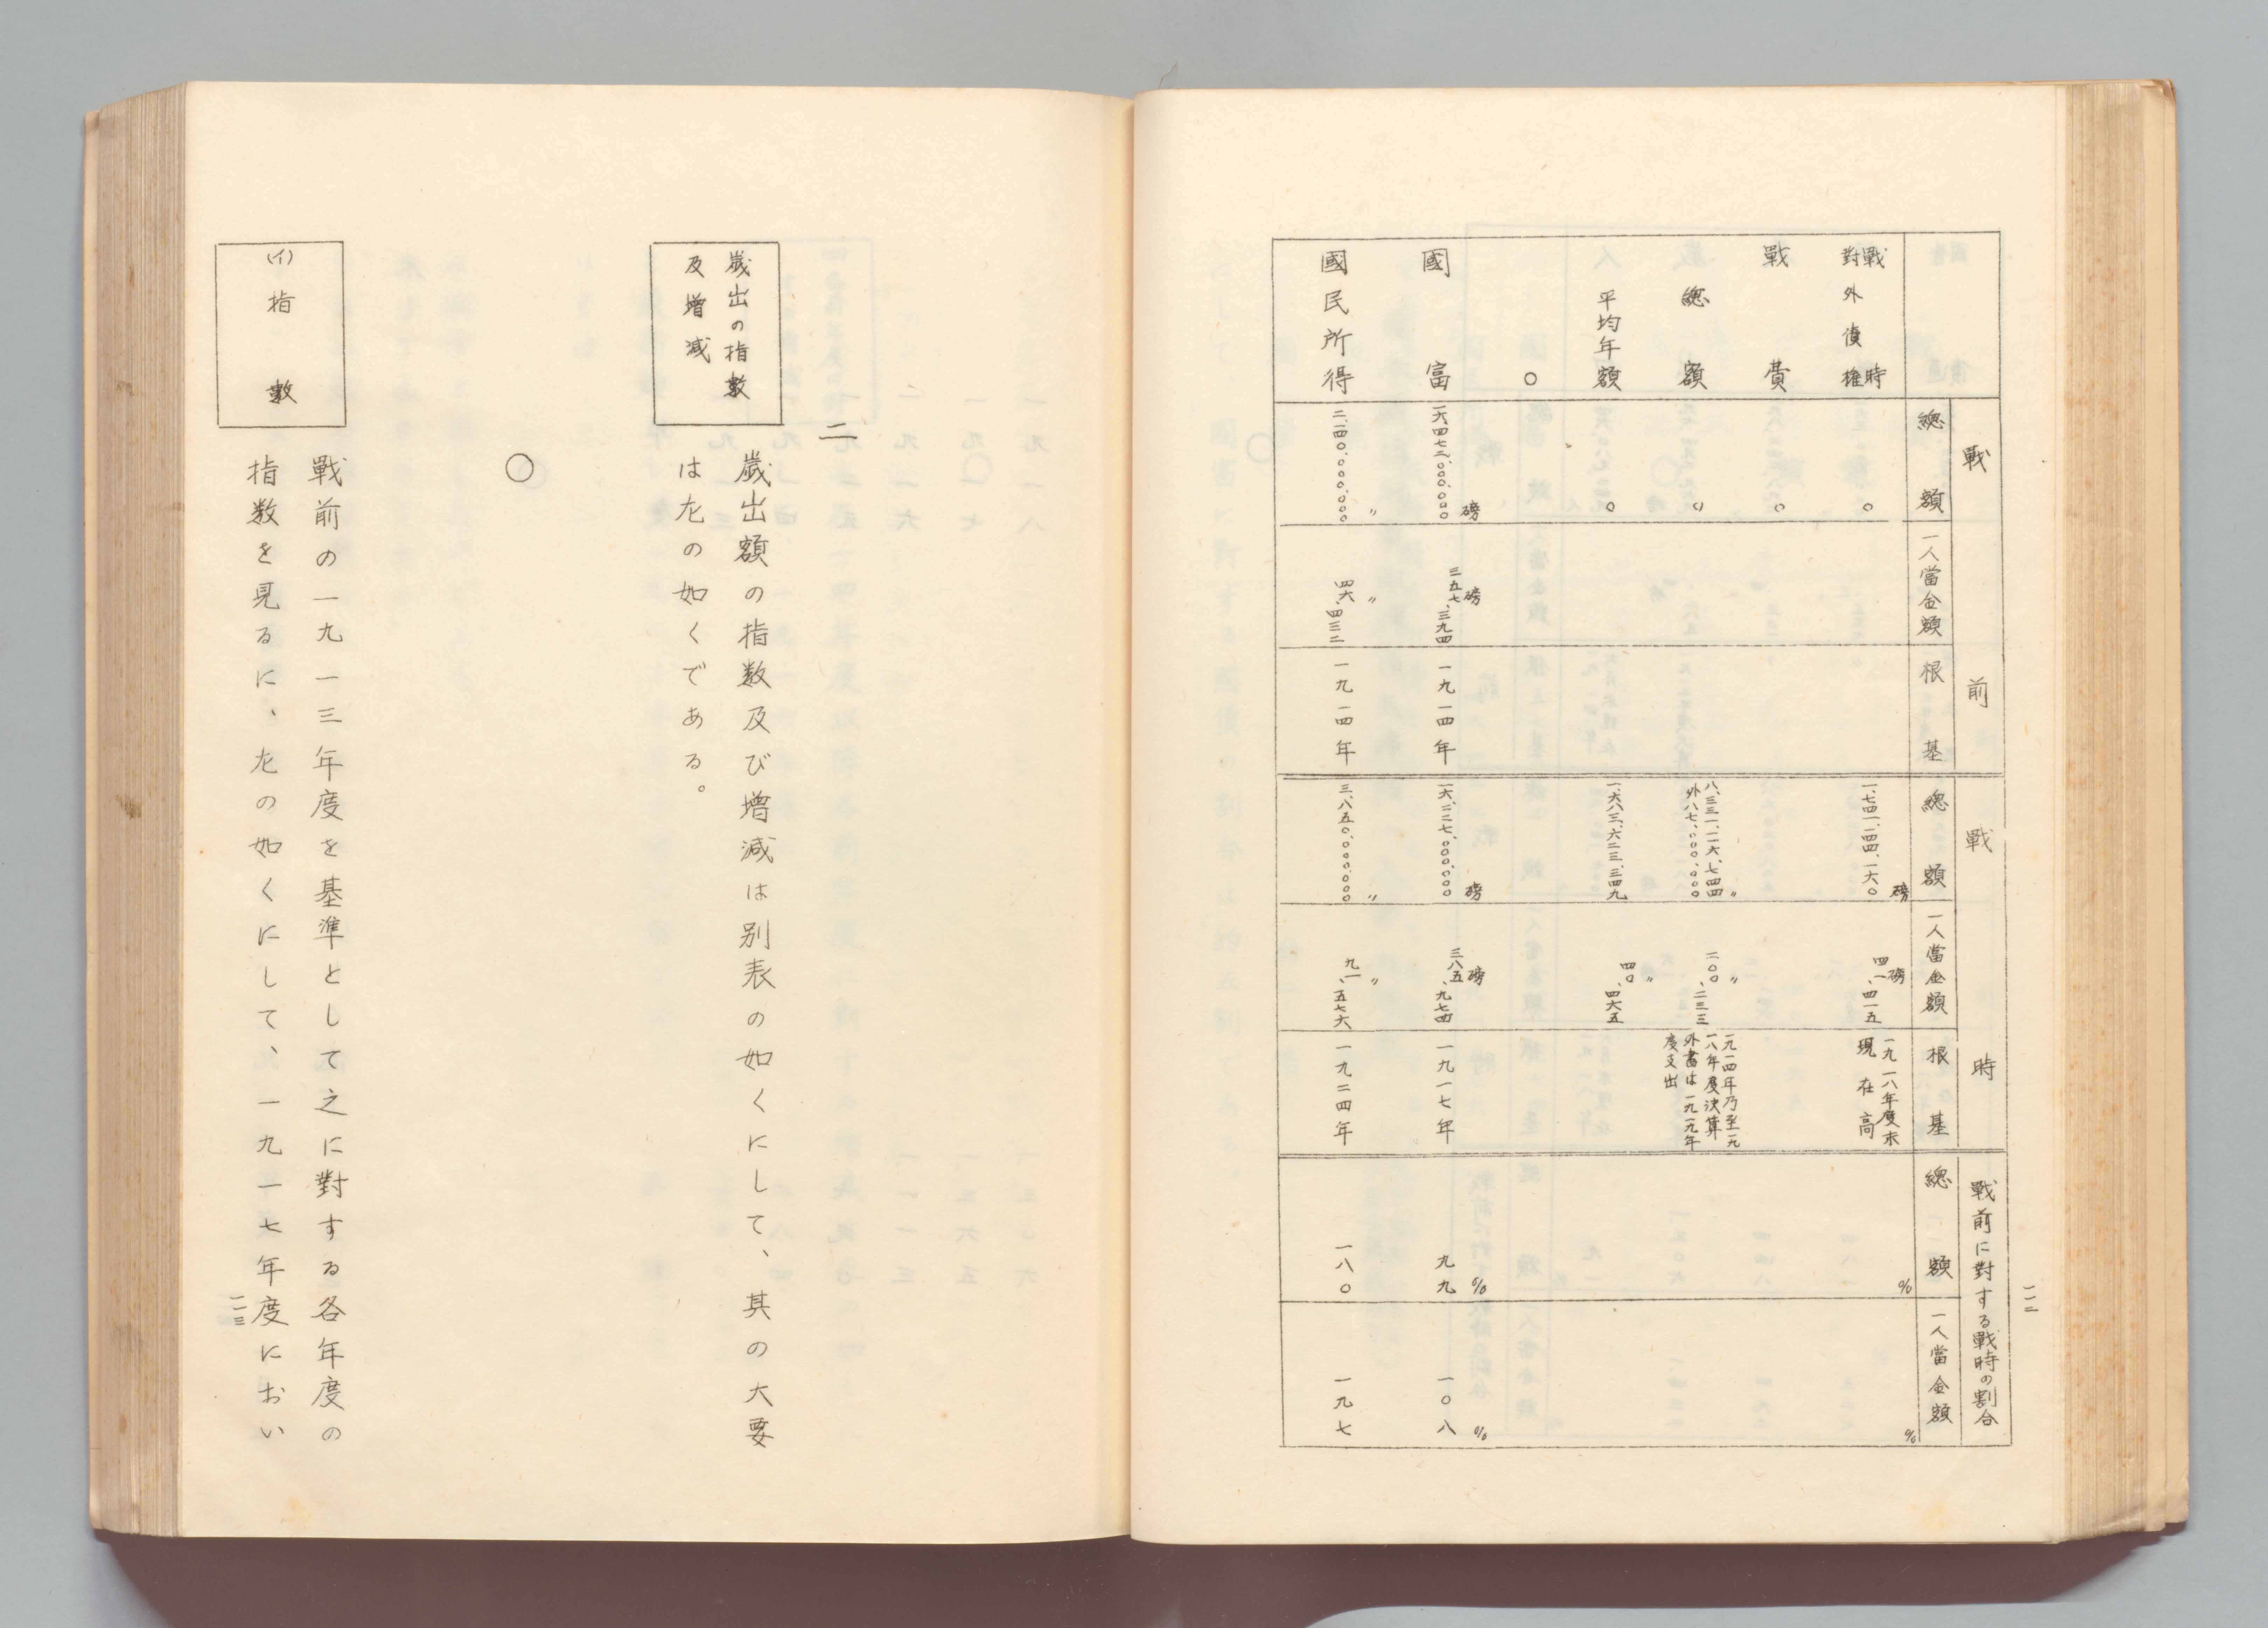 一一二
戰前 戰時 戰前に對する戰時の割合
總額 一人當金額 根基 總額 一人當金額 根基 總額 一人當金額
戰時對外債權 〇 一、七四一、四四、一六〇磅 四一磅、四一五 一九一八年度末現在高 % %
戰費 〇
總額 〇 八、三三一、一一六、七四四〃 外八七、〇〇〇、〇〇〇 二〇〇〃、二三三 一九一四年乃至一九一八年度決算外書は一九一九年度支出
平均年額 〇 一、六八三、六二三、三四九 四〇〃、四六五
〇
國富 一六、四七二、〇〇〇、〇〇〇磅 三五七磅、三九四 一九一四年 一六、三二七、〇〇〇、〇〇〇磅 三八五磅、九七四 一九一七年 九九% 一〇八%
國民所得 二、一四〇、〇〇〇、〇〇〇〃 四六〃、四三二 一九一四年 三、八五〇、〇〇〇、〇〇〇〃 九一〃、五七六 一九二四年 一八〇 一九七
二
歲出の指數
及增減
歲出額の指数及び增減は別表の如くにして、其の大要
は左の如くである。
〇
(イ)指數
戰前の一九一三年度を基準として之に對する各年度の
指数を見るに、左の如くにして、一九一七年度におい
一一三